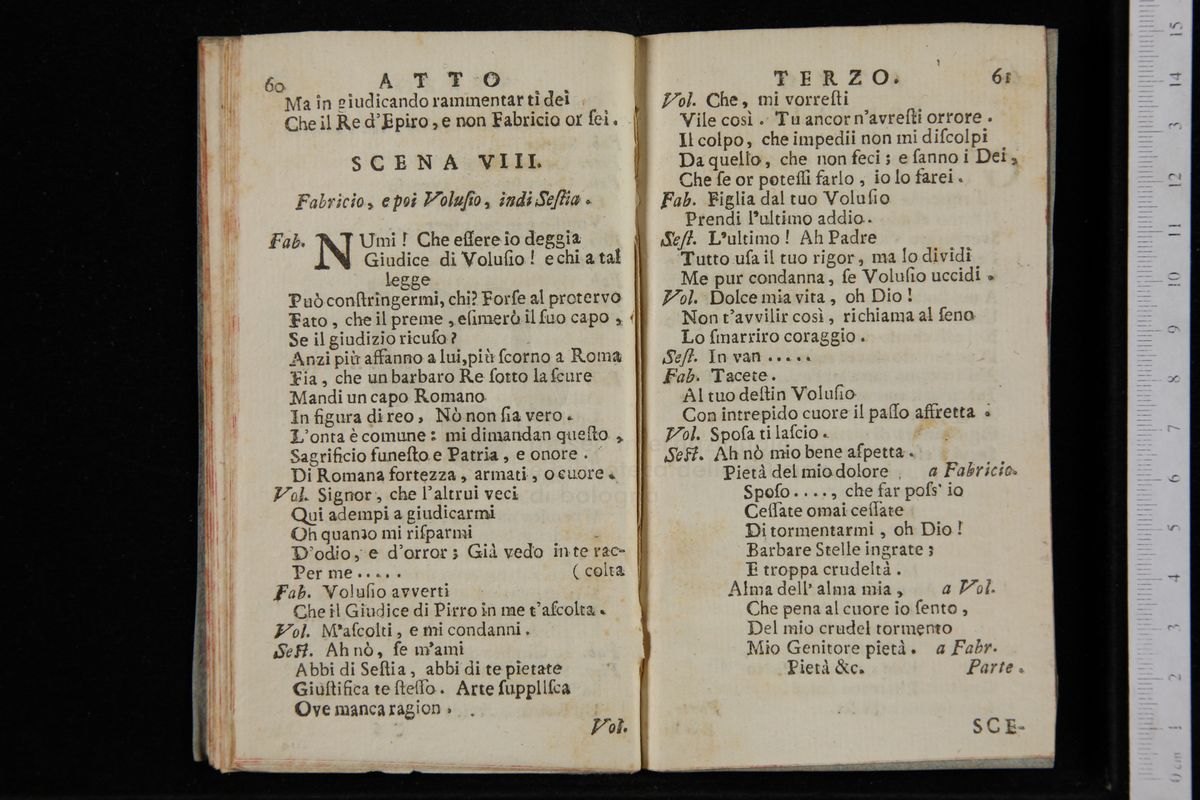 60 ATTO
Ma in giudicando rammentar ti dei
Che il Re d'Epiro, e non Fabricio or sei.
SCENA VIII.
Fabricio, e poi Volusio, indi Sestia.
Fab. NUmi! Che essere io deggia
Giudice di Volusio! e chi a tal
legge
Può constringermi, chi? Forse al protervo
Fato, che il preme, esimerò il suo capo,
Se il giudizio ricuso?
Anzi più affanno a lui, più scorno a Roma
Fia, che un barbaro Re sotto la scure
Mandi un capo Romano
In figura di reo, Nò non sia vero.
L'onta è comune: mi dimandan questo,
Sagrificio funesto e Patria, e onore.
Di Romana fortezza, armati, o cuore.
Vol. Signor, che l'altrui veci
Qui adempi a giudicarmi
Oh quanto mi risparmi
D'odio, e d'orror; Già vedo in te rac-
Per me ..... (colta
Fab. Volusio avverti
Che il Giudice di Pirro in me t'ascolta.
Vol. M'ascolti, e mi condanni.
Sest. Ah nò, se m'ami
Abbi di Sestia, abbi di te pietate
Giustifica te stesso. Arte supplisca
Ove manca ragion.
Vol.
TERZO. 61
Vol. Che, mi vorresti
Vile così. Tu ancor n'avresti orrore.
Il colpo, che impedii non mi discolpi
Da quello, che non feci; e sanno i Dei,
Che se or potessi farlo, io lo farei.
Fab. Figlia dal tuo Volusio
Prendi l'ultimo addio.
Sest. L'ultimo! Ah Padre
Tutto usa il tuo rigor, ma lo dividi
Me pur condanna, se Volusio uccidi.
Vol. Dolce mia vita, oh Dio!
Non t'avvilir così, richiama al seno
Lo smarriro coraggio.
Sest. In van .....
Fab. Tacete.
Al tuo destin Volusio
Con intrepido cuore il passo affretta.
Vol. Sposa ti lascio.
Sest. Ah nò mio bene aspetta.
Pietà del mio dolore a Fabricio.
Sposo ...., che far poss' io
Cessate omai cessate
Di tormentarmi, oh Dio!
Barbare Stelle ingrate;
E troppa crudeltà.
Alma dell' alma mia, a Vol.
Che pena al cuore io sento,
Del mio crudel tormento
Mio Genitore pietà. a Fabr.
Pietà &c. Parte.
SCE-